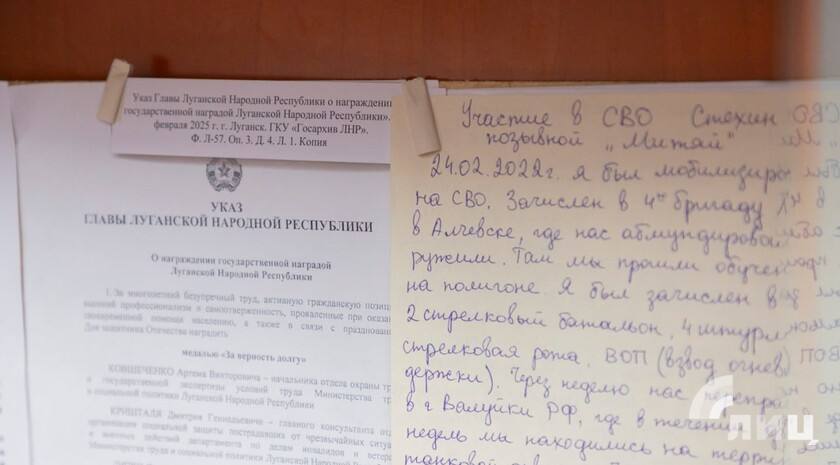 Указ Главы Луганской Народной Республики о награждении
государственной наградой Луганской Народной Республики».
февраля 2025 г. г. Луганск. ГКУ «Госархив ЛНР».
Ф. Л-57. Оп. 3. Д. 4. Л. 1. Копия
УКАЗ
ГЛАВЫ ЛУГАНСКОЙ НАРОДНОЙ РЕСПУБЛИКИ
О награждении государственной наградой
Луганской Народной Республики
1. За многолетний безупречный труд, активную гражданскую позицию
высокий профессионализм и самоотверженность, проявленные при оказан
своевременной помощи населению, а также в связи с праздновани
Дня защитника Отечества наградить
медалью «За верность долгу»
Артема Викторовича – начальника отдела охраны тр
и государственной экспертизы условий труда Министерства тр
и социальной политики Луганской Народной Республики
КРИШТАЛЯ Дмитрия Геннадьевича – главного консультанта отд
организации социальной защиты пострадавших от чрезвычайных ситуа
и военных действий департамента по делам инвалидов и ветера
Министерства труда и социальной политики Луганской Народной
Участие в СВО Стехин
позывной „Митяй”
24.02.2022г. я был мобилизиро
на СВО. Зачислен в 4ю бригаду
в Алчевске, где нас абмундирова
ружили. Там мы прошли обучен
на полигоне. Я был зачислен в
2 стрелковый батальон, 4 штурм
стрелковая рота, ВОП (взвод огнев
держки). Через неделю нас перепра
в г Валуйки РФ, где в течении
недель мы находились на террит
ЛИЦ